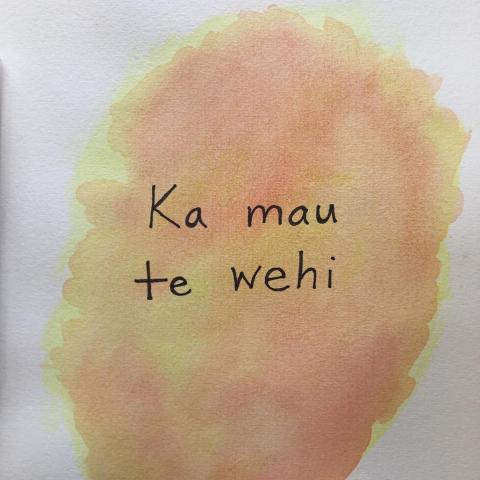 Ka mau
te wehi